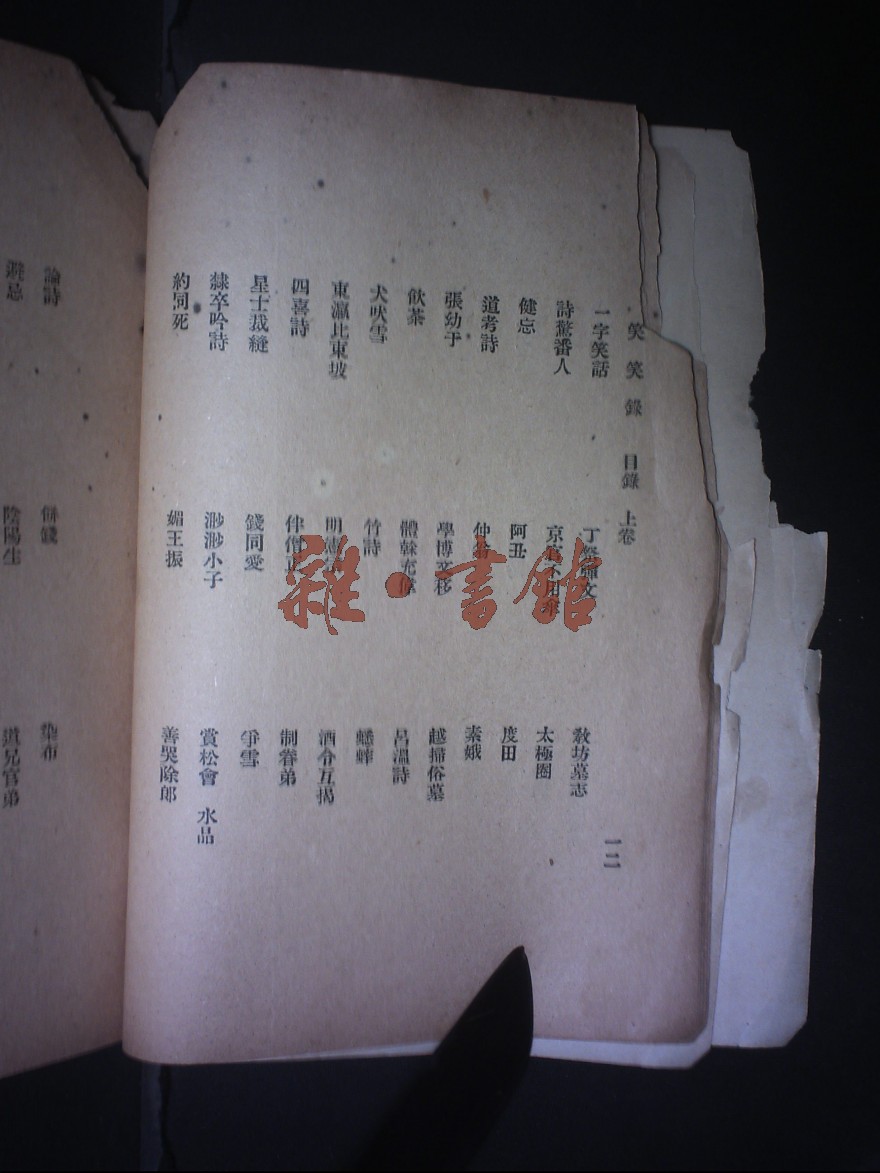 笑笑錄 目錄 上卷
一二
一字笑話 丁祭彈文 敎坊墓志
詩驚番人 京官不用 太極圈
健忘 阿丑 度田
道考詩 仲 素娥
張幼于 學博文移 越掃俗墓
飲茶 體榦充偉 呂溫詩
犬吠雪 竹詩 蟋蟀
東瀛比東坡 明 酒令互揭
四喜詩 僧 制眷弟
星士裁縫 錢同愛 爭雪
隸卒吟詩 渺渺小子 賞松會 水品
約同死 媚王振 善哭除郎
論詩 倂錢 染布
避忌 陰陽生 道兄官弟
雜·書館